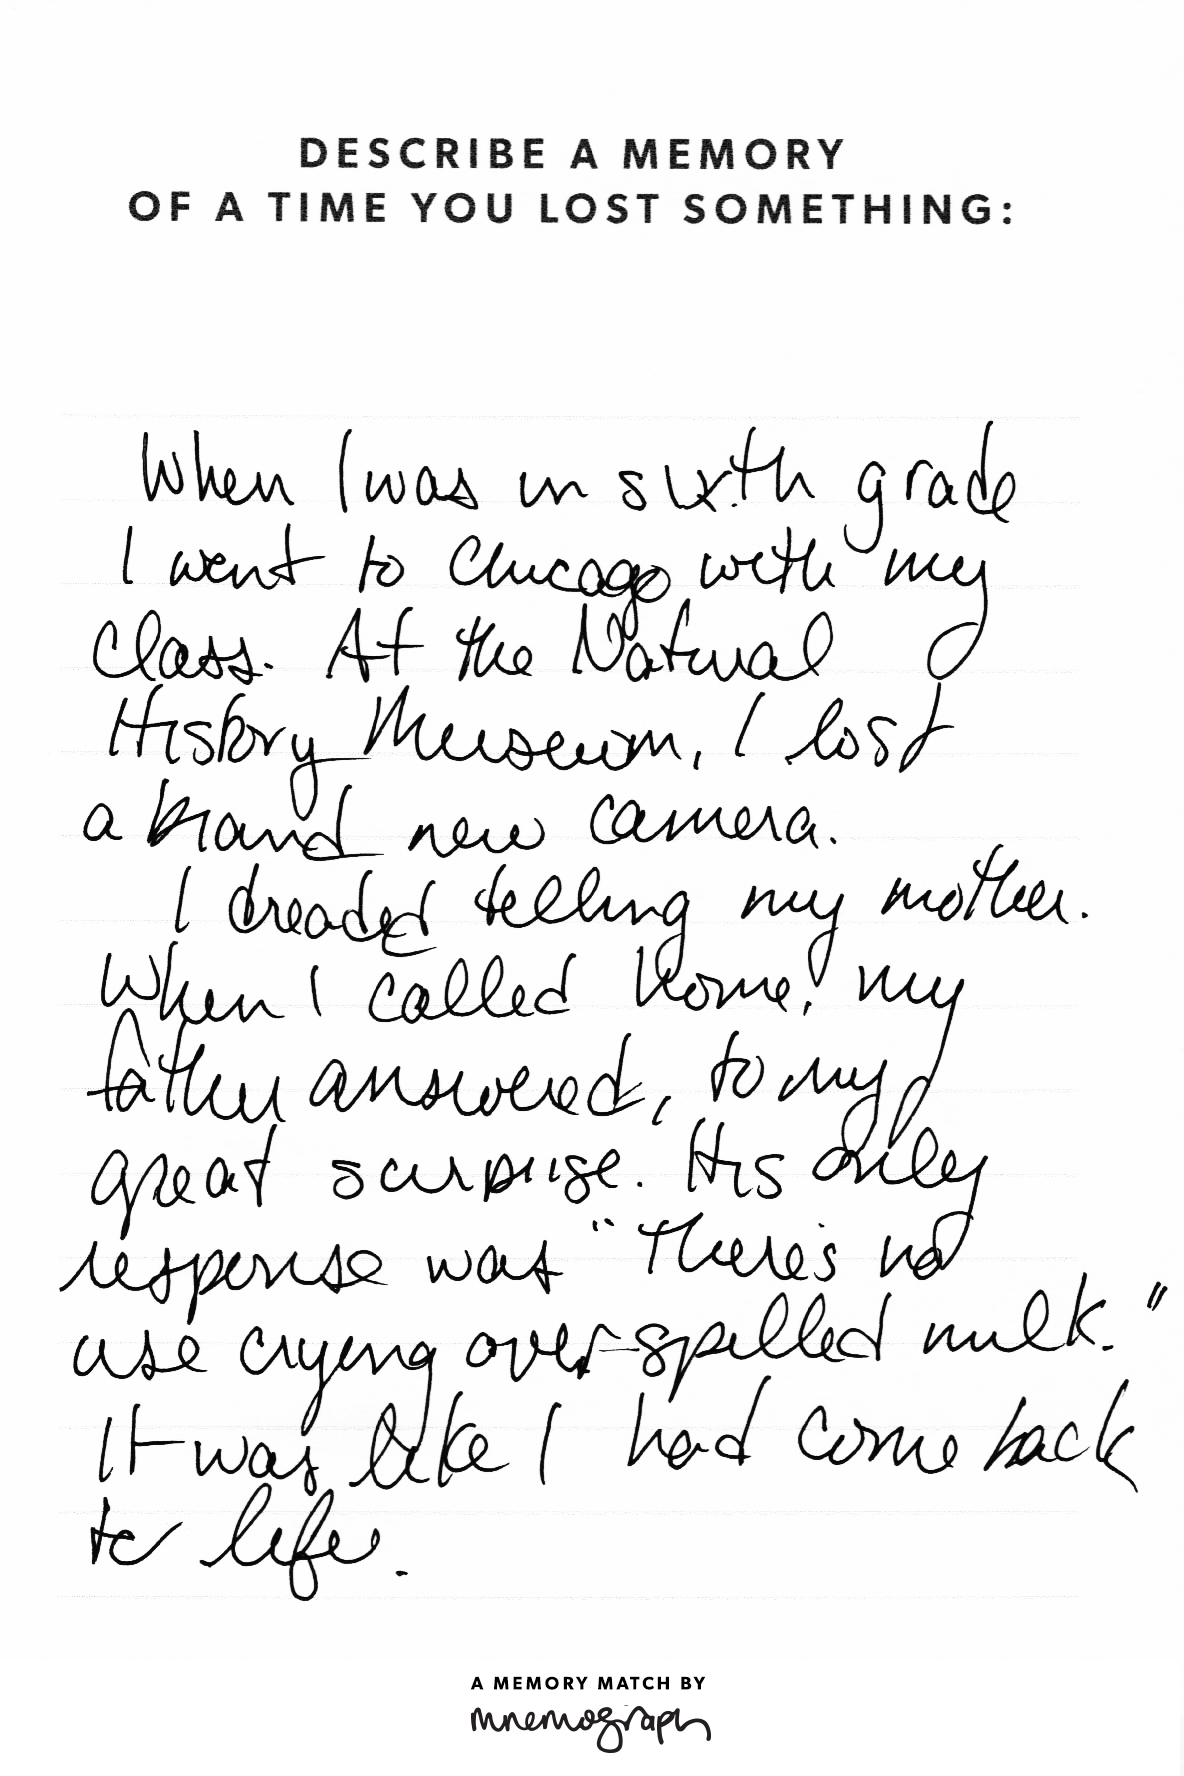 DESCRIBE A MEMORY
OF A TIME YOU LOST SOMETHING:
When I was in sixth grade
I went to Chicago with my
class. At the Natural
History Museum, I lost
a brand new camera.
I dreaded telling my mother.
When I called home, my
father answered, to my
great surprise. His only
response was "There's no
use crying over spilled milk."
It was like I had come back
to life.
A MEMORY MATCH BY
mnemograph